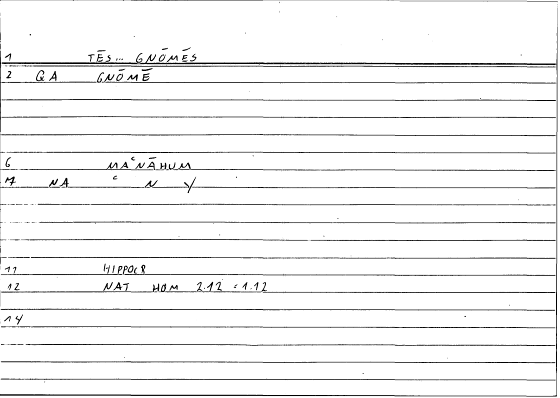 1 TĒS... GNŌMĒS
2 QA GNŌMĒ
6 MAʿNĀHUM
7 NA ʿ N Y
11 HIPPOCR
12 NAT HOM 2.12 = 1.12
14